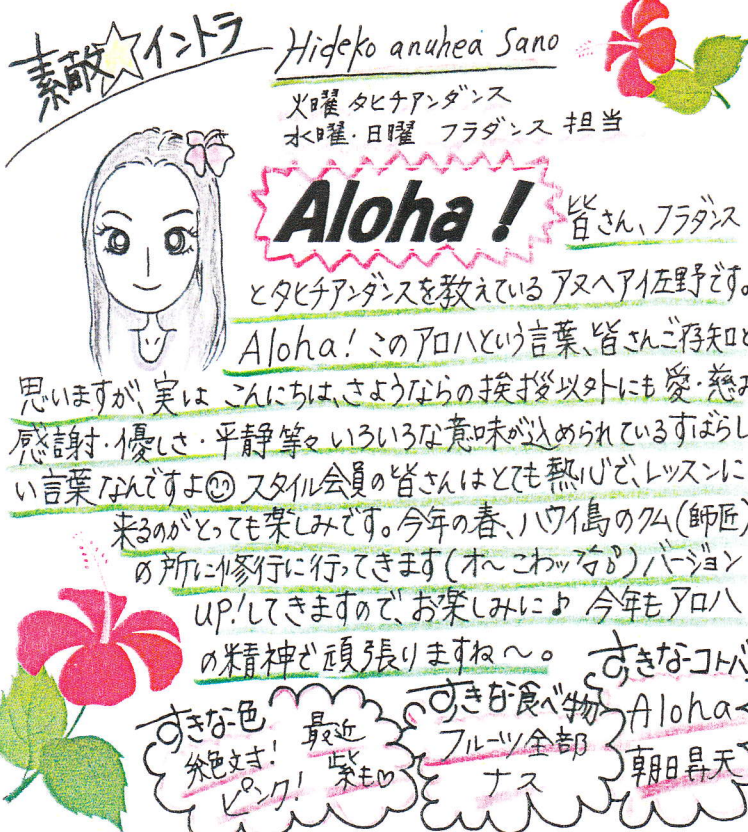 素敵☆イントラ
Hideko anuhea Sano
火曜 タヒチアンダンス
水曜・日曜 フラダンス 担当
Aloha!
皆さん、フラダンス
とタヒチアンダンスを教えている アヌヘアイ左野です。
Aloha! このアロハという言葉、皆さんご存知と
思いますが、実は こんにちは、さようならの挨拶以外にも 愛・慈
感謝・優しさ・平静等々 いろいろな意味が込められているすばらし
い言葉なんですよ☺ スタイル会員の皆さんはとても熱心で、レッスンに
来るのがとっても楽しみです。今年の春、ハワイ島のクム(師匠)
の所に修行に行ってきます(オ〜こわッ)バージョン
UP!してきますので、お楽しみに♪ 今年もアロハ
の精神で頑張りますね〜。
すきな色
絶対!
ピンク!
最近
紫も♡
すきな食べ物
フルーツ全部
ナス
すきなコトバ
Aloha
朝日昇天